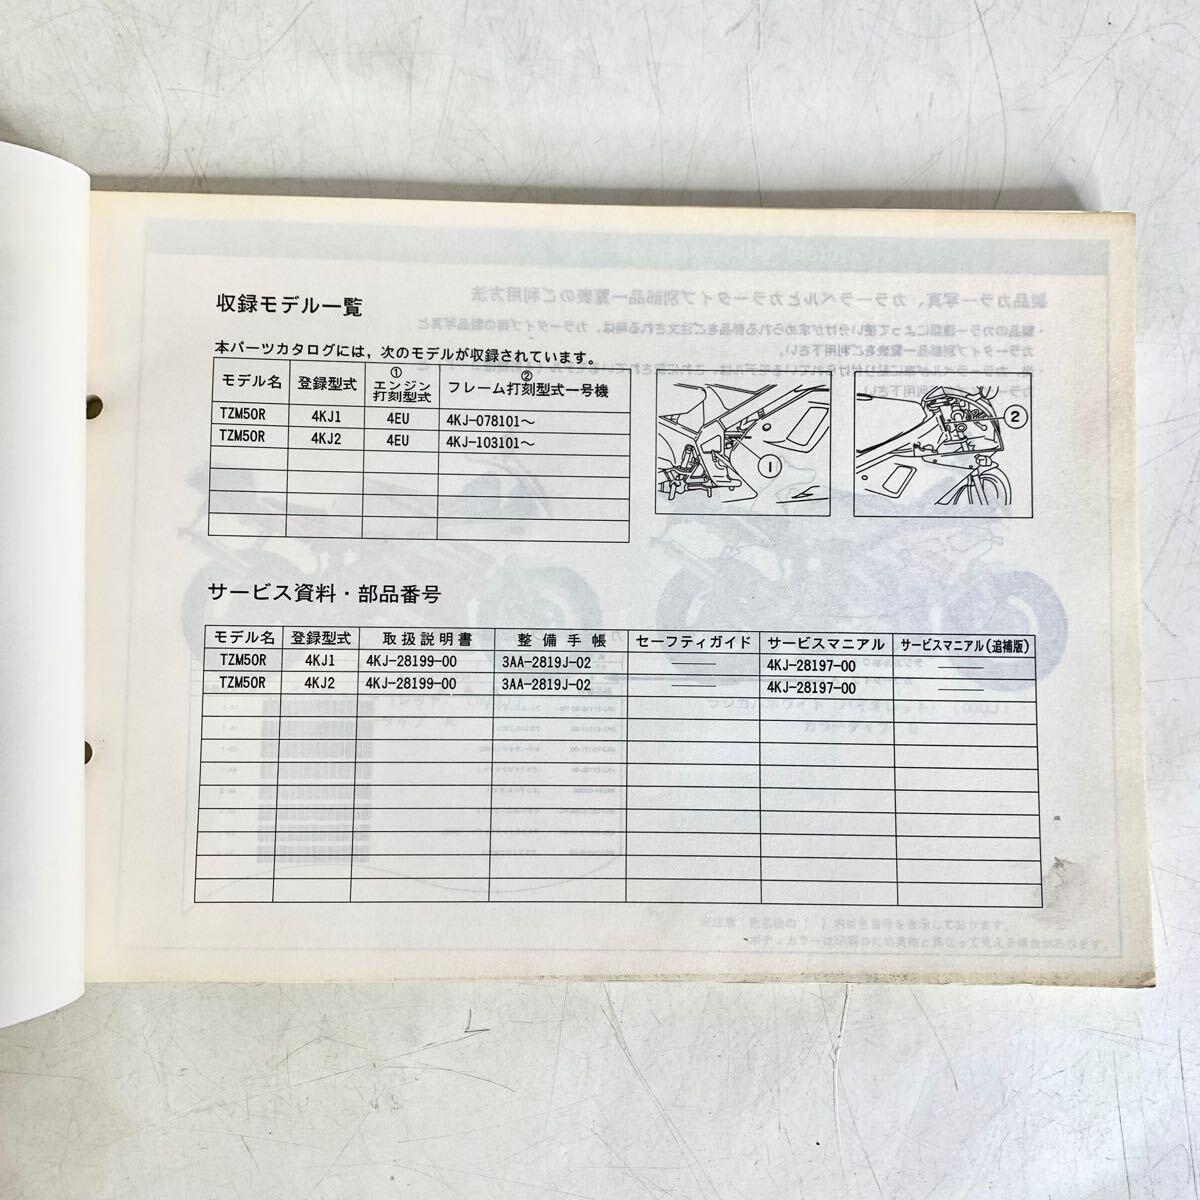 収録モデル一覧
本パーツカタログには，次のモデルが収録されています。
モデル名 登録型式 ①エンジン打刻型式 ②フレーム打刻型式一号機
TZM50R 4KJ1 4EU 4KJ-078101～
TZM50R 4KJ2 4EU 4KJ-103101～
1
2
サービス資料・部品番号
モデル名 登録型式 取扱説明書 整備手帳 セーフティガイド サービスマニアル サービスマニアル(追補版)
TZM50R 4KJ1 4KJ-28199-00 3AA-2819J-02 —— 4KJ-28197-00 ——
TZM50R 4KJ2 4KJ-28199-00 3AA-2819J-02 —— 4KJ-28197-00 ——
製品カラー写真、カラーラベルとカラータイプ別部品一覧表のご利用方法